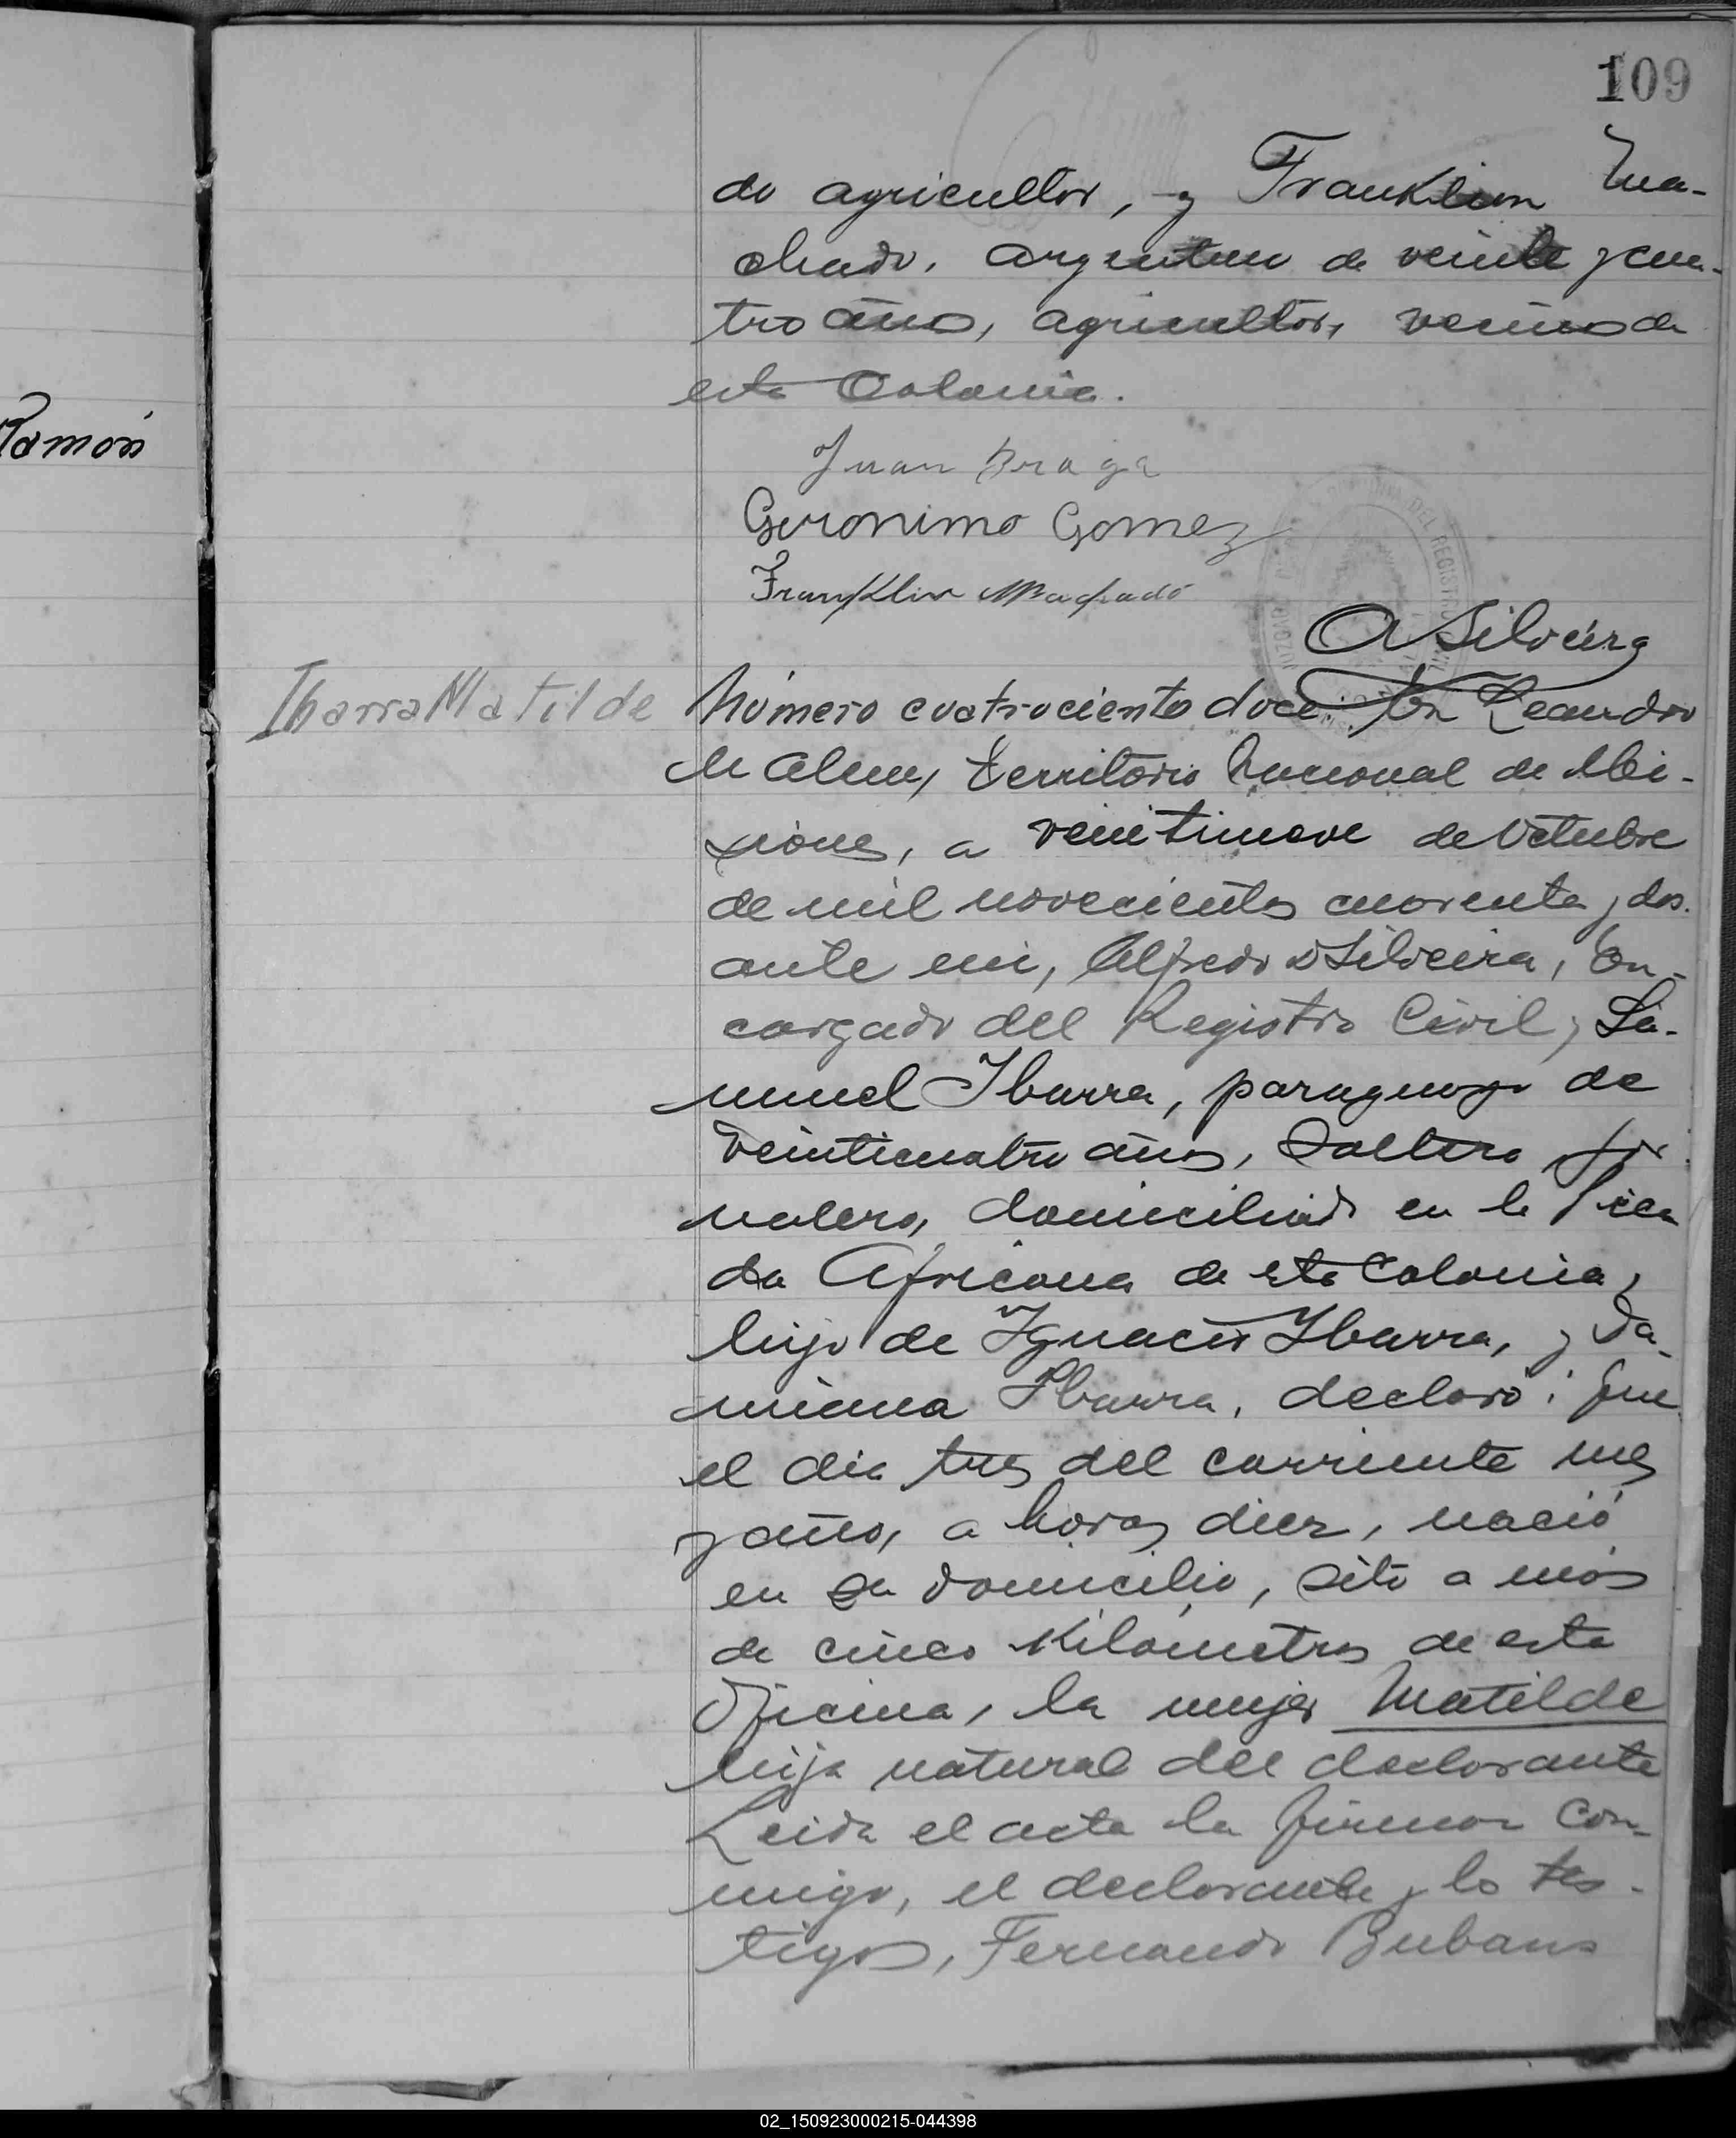 109
do agricultor, y Franklin Ma-
chado, argentino de veinte y cua-
tro años, agricultor, vecinos de
esta Colonia.
Ramón
Juan Braga
Geronimo Gomez
Franklin Machado
A Silveira
Ibarra Matilde
Número cuatrociento doce: En Leandro
N Alem, territorio Nacional de Mi-
siones, a veintinueve de Octubre
de mil novecientos cuarenta y dos.
ante mi, Alfredo D Silveira, En-
cargado del Registro Civil,
Ibarra, paraguayo de
veinticuatro años, Soltero jor
nalero, domiciliado en la Pica
da Africana de esta Colonia,
hijo de Ignacio Ibarra, y Da-
miana Ibarra, declaró: Que
el dia tres del corriente mes
y año, a horas diez, nació
en su domicilio, sito a más
de cinco Kilómetros de esta
Oficina, la mujer Matilde
hija natural del declarante
Leida el acta la firman con-
migo, el declarante y lo tes-
tigos, Fernando
02_150923000215-044398